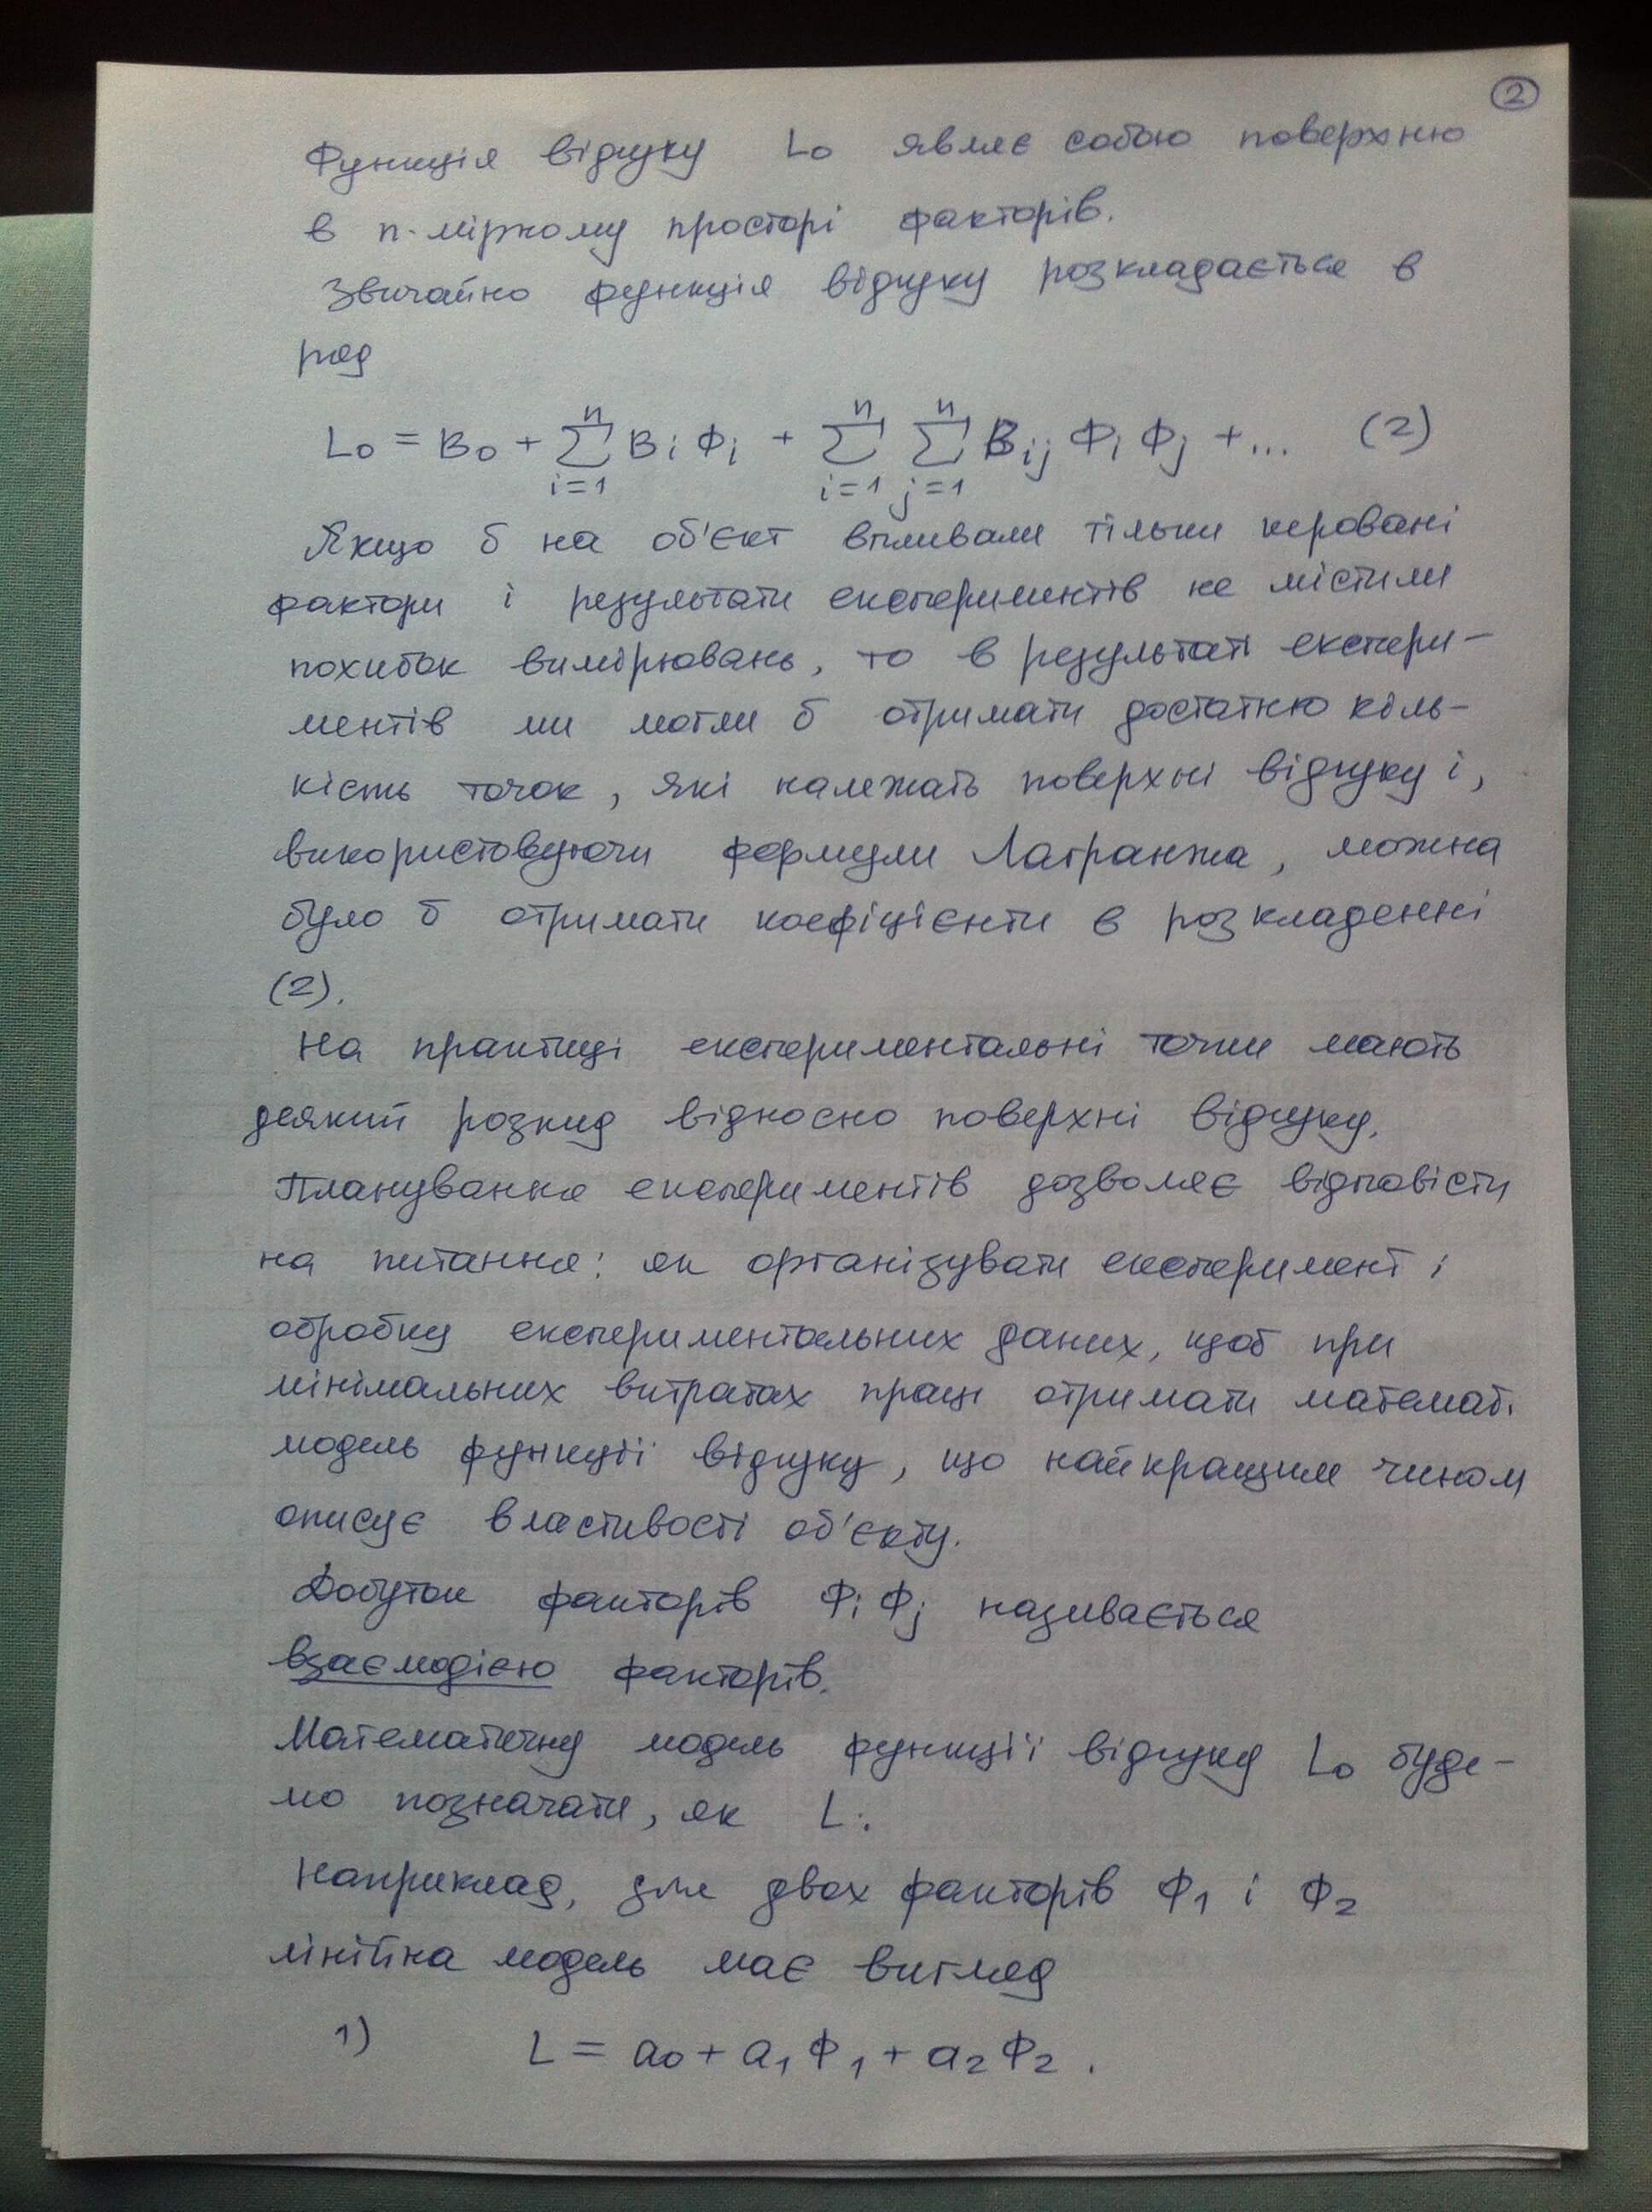 2
Функція відгуку L₀ являє собою поверхню
в n-мірному просторі факторів.
Звичайно функція відгуку розкладається в
ряд
L₀ = B₀ + ∑ᵢ₌₁ⁿ Bᵢ Фᵢ + ∑ᵢ₌₁ⁿ ∑ⱼ₌₁ⁿ Bᵢⱼ Фᵢ Фⱼ + ... (2)
Якщо б на об'єкт впливали тільки керовані
фактори і результати експериментів не містили
похибок вимірювань, то в результаті експери-
ментів ми могли б отримати достатню кіль-
кість точок, які належать поверхні відгуку і,
використовуючи формули Лагранжа, можна
було б отримати коефіцієнти в розкладенні
(2).
На практиці експериментальні точки мають
деякий розкид відносно поверхні відгуку.
Планування експериментів дозволяє відповісти
на питання: як організувати експеримент і
обробку експериментальних даних, щоб при
мінімальних витратах праці отримати математ.
модель функції відгуку, що найкращим чином
описує властивості об'єкту.
Добуток факторів Фᵢ Фⱼ називається
взаємодією факторів.
Математичну модель функції відгуку L₀ буде-
мо позначати, як L.
Наприклад, для двох факторів Ф₁ і Ф₂
лінійна модель має вигляд
1) L = a₀ + a₁ Ф₁ + a₂ Ф₂.